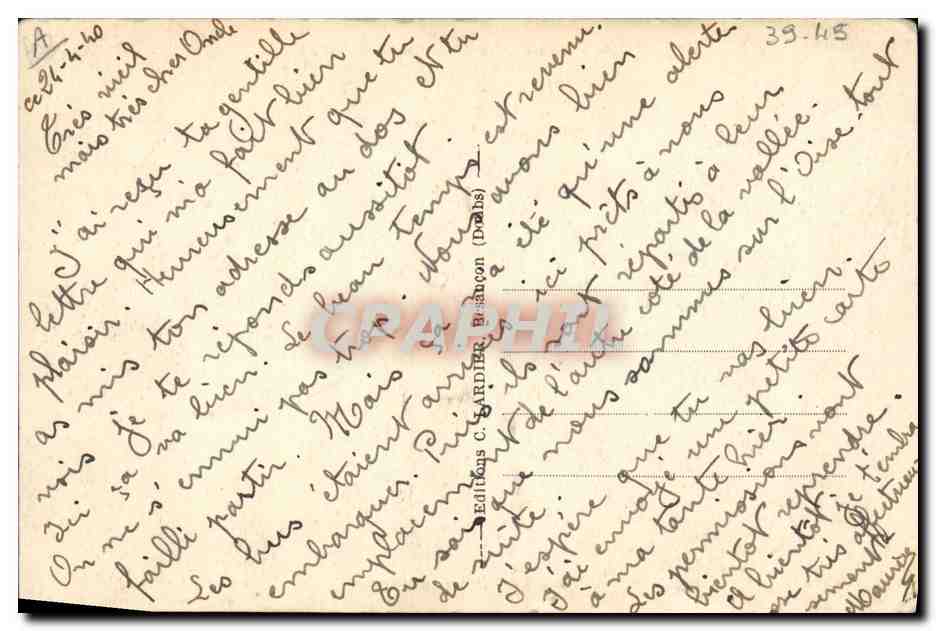 A
39-45
ce 24-4-40
Très vieil
mais très cher Oncle
J'ai reçu ta gentille
lettre qui m'a fait bien
plaisir. Heureusement que tu
as mis ton adresse au dos et tu
vois je te réponds aussitôt.
Ici sa va bien. Le beau temps est revenu.
On ne s'ennui pas trop. Nous avons bien
failli partir. Mais sa a été qu'une alerte
Les bus étaient arrivés ici prêts à nous
embarquer. Puis ils sont répartis à leur
emplacement de l'autre coté de la vallée.
Tu sais que nous sommes sur l'Oise tout
de suite.
J'espère que tu vas bien.
J'ai envoyé une petite carte
à ma tante hier.
Les permissions vont
bientôt reprendre.
A bientôt. Je t'embra
sse très affectueu
sement
Editions C. LARDIER, Besançon (Doubs)
CRAPHIL